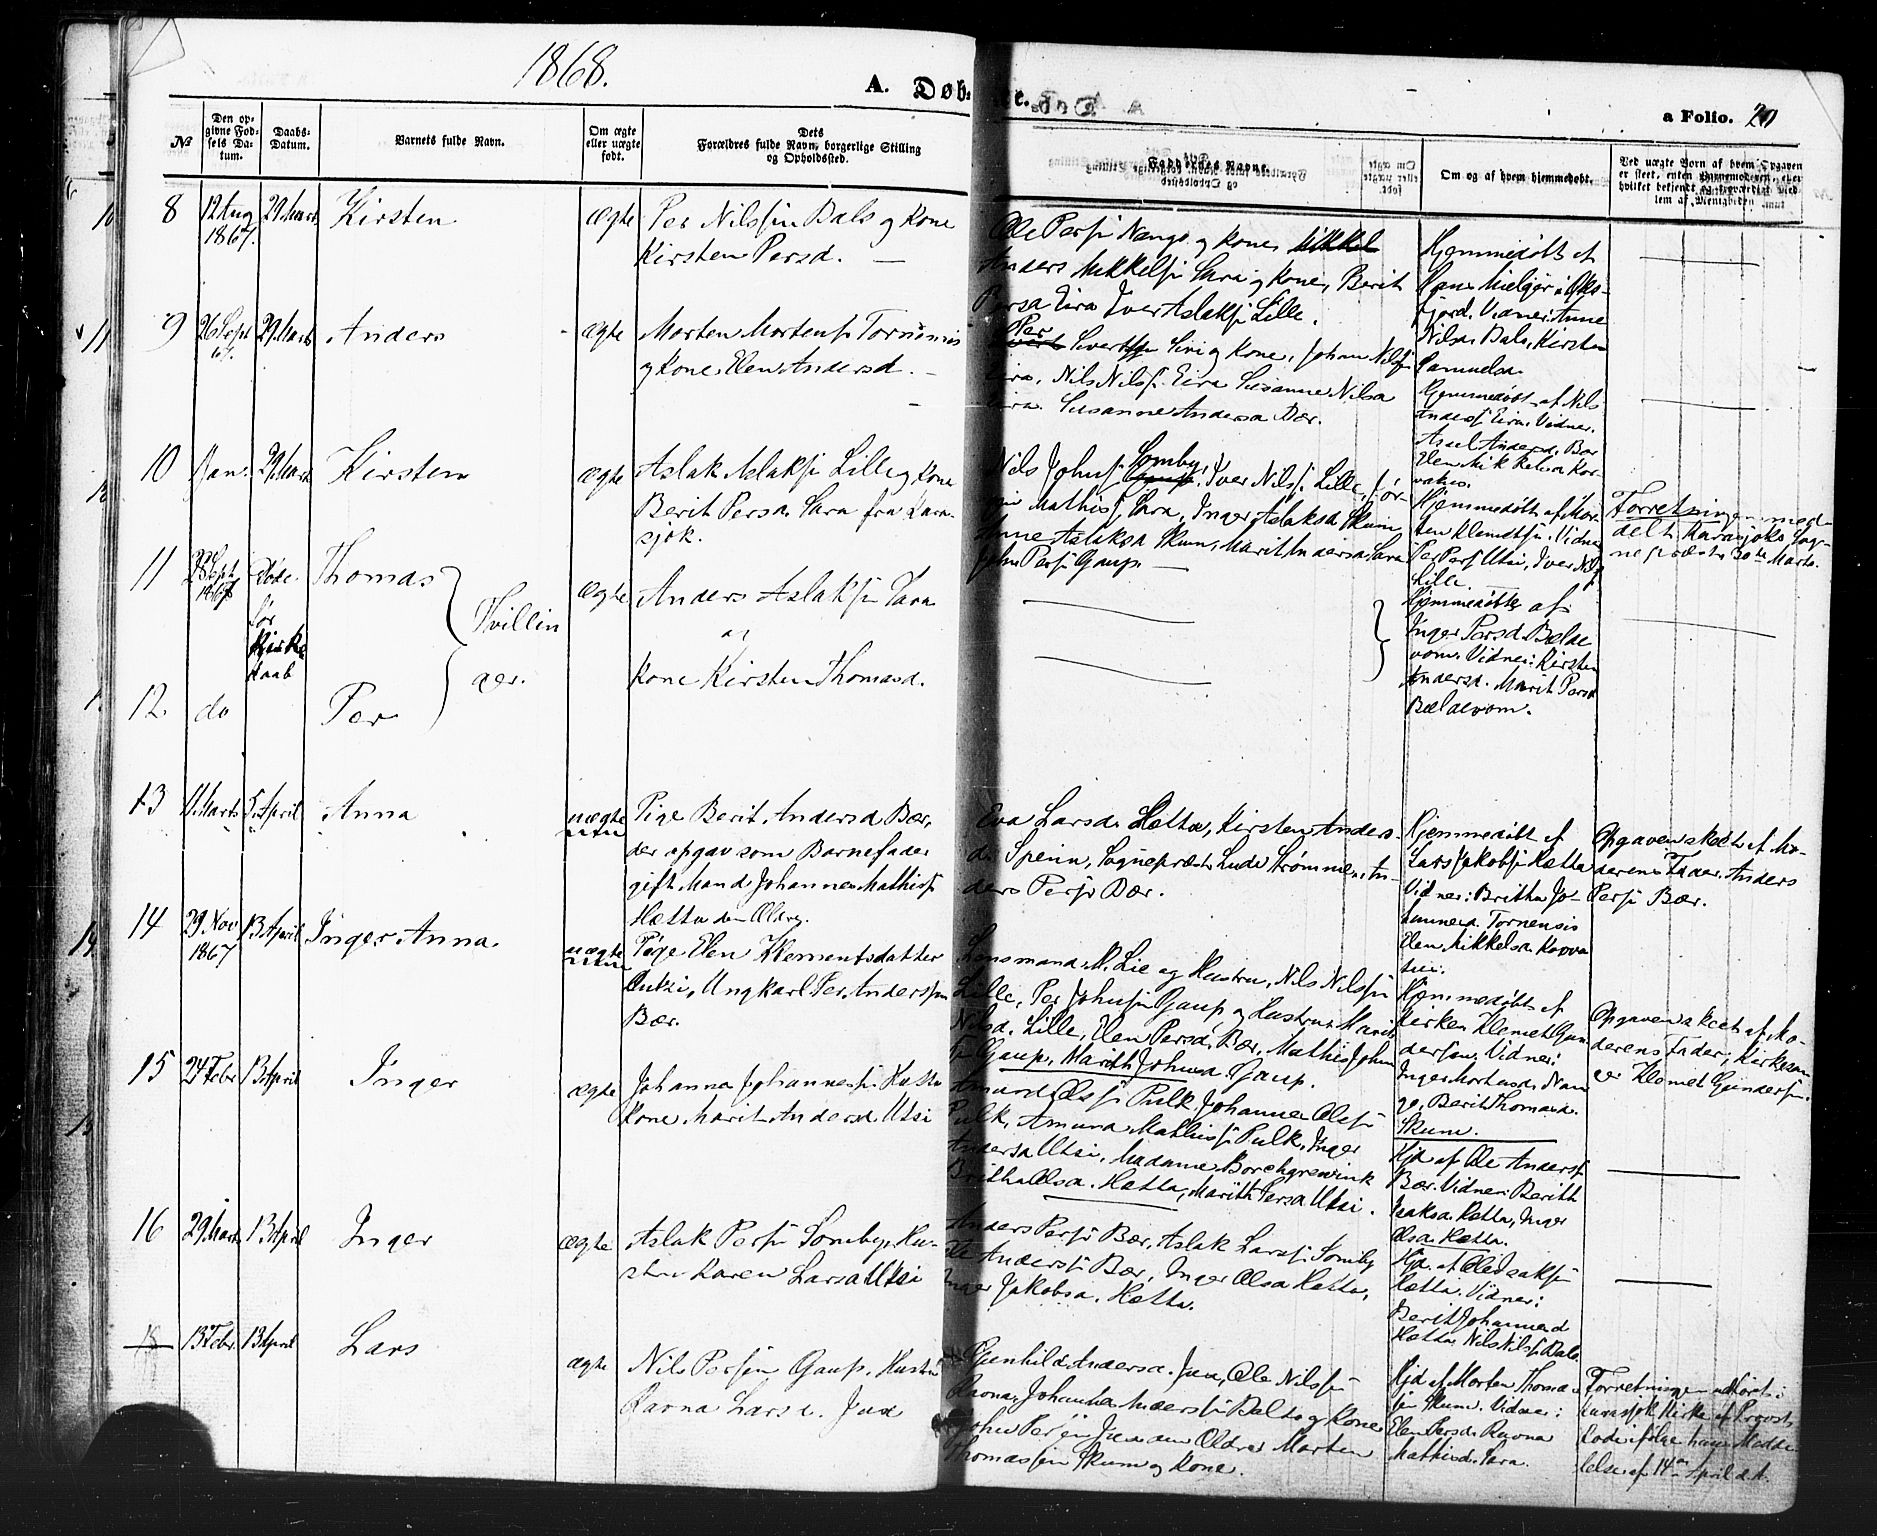 1868.
A. Døb
te.
a Folio. 20
№
Den op-
givne Fød-
sels Da-
tum.
Daabs-
Datum.
Barnets fulde Navn.
Om ægte
eller uægte
født.
Dets
Forældres fulde Navn, borgerlige Stilling
og Opholdssted.
Faddernes Navne.
Om og af hvem hjemmedøbt.
Ved uægte Børn af hvem Opgaven
er skeet, enten Barnemoderen, eller
hvilket bekjendt og troværdigt Med-
lem af Menigheden
8
12 Aug
1867.
29 Marts
Kirsten
ægte
Per Nilssen Bals og Kone
Kirsten Persd.
Ole Persen Nango og Kone,
Anders Mikkelsen Sara og Kone, Berit
Persd Eira Iver Aslaksen Lille.
Hjemmedøbt af
fjord. Vidner: Anne
Nilsd. Bals, Kirsten
Samuelsd.
9
26 Sept
67.
29 Marts
Anders
ægte
Morten Mortensen Tornensis
og Kone Elen Andersd.
Per Sivertsen Siri og Kone, Johan Nilsen
Eira, Nils Nilsen Eira Susanne Nilsd
Eira. Susanne Andersd Bær.
Hjemmedøbt af Nils
Andersen Eira. Vidner.
Andersd. Bær
Elen Mikkelsd Kor-
vatus.
10
1 Jan.
29 Marts
Kirsten
ægte
Aslak Aslaksen Lille og Kone
Berit Persd. Sara fra Kara-
sjok.
Nils Johnsen Somby, Iver Nilsen Lille, Jør-
gen Mathisen Sara, Inger Aslaksd. Skum
Anne Aslaksd Skum, Marit Andersd. Sara
John Persen Gaup.
Hjemmedøbt af Mor-
ten Klemetsen. Vidner
Per Persen Utsi, Iver Nilsen
Lille.
Forretningen med-
delt Karasjoks Sog-
nepræst 30te Marts.
11
23 Sept
1867
Døde
før
Kirke
daab
Thomas
Tvillin
ger.
ægte
Anders Aslaksen Sara
og
Kone Kirsten Thomasd.
Hjemmedøbte af
Inger Persd. Bælde
vom. Vidner: Kirsten
Andersd. Marit Persd
Bældevom.
12.
do
Per
13
11. Marts
5. April
Anna
uægte
Pige Berit Andersd Bær,
der opgav som Barnefader
gift Mand Johannes Mathisen
Hætta den Eldre.
Eva Larsd. Hætta, Kirsten Anders-
d. Spein, Sognepræst Lude Strømme, An-
ders Persen Bær.
Hjemmedøbt af
Lars Jakobsen Hætta
Vidner: Britha Jo-
hannesd. Tornensis
Elen Mikkelsd Korva
tus.
Opgaven skeet af Mo-
derens Fader Anders
Persen Bær.
14
29 Nov
1867
13 April
Inger Anna.
uægte
Pige Elen Klementsdatter
Outzi, Ungkarl Per Anderssen
Bær.
Lensmand M. Lie og Hustru, Nils Nilssen
Lille, Per Johnsen Gaup og Hustru Marit
Nilsd. Lille, Elen Persd. Bær, Mathis John
sen Gaup, Marith Johnsd. Gaup.
Hjemmedøbt af
Kirkes. Klemet Gun
dersen. Vidner:
Inger Mortensd. Nan
go, Berit Thomasd.
Skum.
Opgaven skeet af Mo-
derens Fader, Kirkesan
ger Klemet Gundersen.
15
24 Febr
13 April
Inger
ægte
Johannes Johannesen Hætta
Kone Marit Andersd. Utsi
Amund Olssen Pulk, Johannes Olsen
Pulk, Amund Mathissen Pulk, Inger
Andersd Utsi, Madame Borchgrevink
Britha Olsd. Hætta, Marith Persd Utsi.
Hjd af Ole Andersen
Bær. Vidner: Berith
Isaksd. Hætta, Inger
Olsd. Hætta.
16
29 Marts
13 April
Inger
ægte
Aslak Persen Somby, Hu-
stru Karen Larsd Utsi
Anders Persen Bær, Aslak Larsen Somby
Ole Andersen Bær, Inger Olsd Hætta,
Inger Jakobsd. Hætta.
Hjd. af Ole Isaksen
Hætta. Vidner:
Berit Johannesd
Hætta, Nils Nilsen Bals.
18
13 Febr
13 April
Lars
ægte
Nils Persen Gaup. Hustru
Ravna Larsd. Juu
Gunhild Andersd. Juu, Ole Nilssen
Ravna, Johannes Andersen Balto og Kone
John Persen Juu den Eldre Morten
Thomassen Skum og Kone.
Hjd af Morten Thomas-
sen Skum. Vidner:
Elen Persd. Ravna
Mathisd. Sara.
Forretningen udført i
Karasjok Kirke af Provst
Kode ifølge hans Medde
lelse af 14de April d. A.